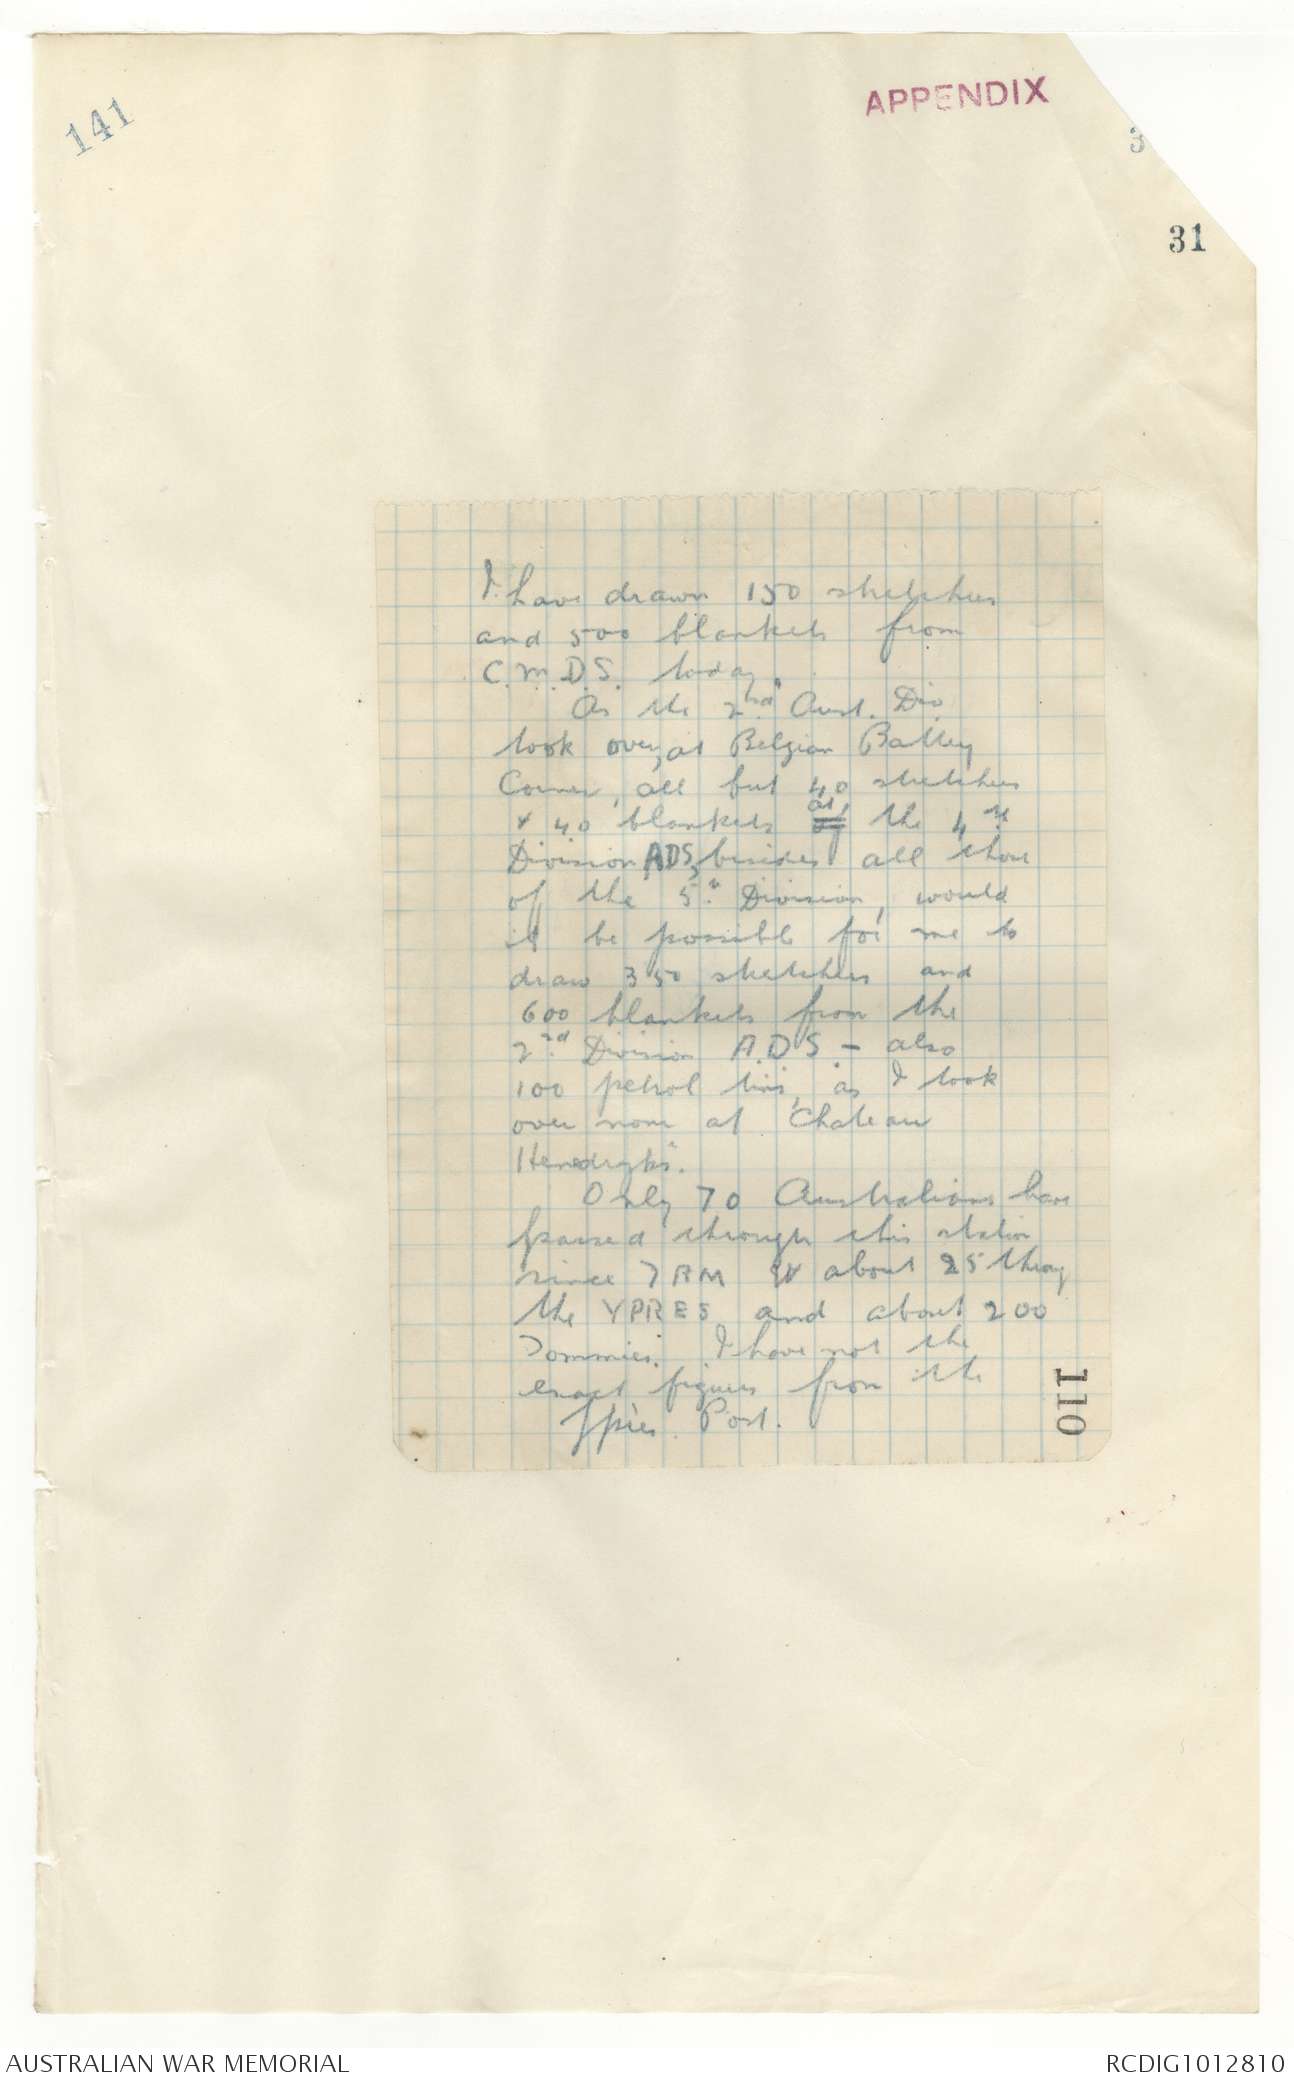 141
APPENDIX
3
31
I have drawn 150 stretchers
and 500 blankets from
C.M.D.S. today.
As the 2nd Aust. Div
took over, at Belgian Battery
Corner, all but 40 stretchers
+ 40 blankets at the 4th
Division ADS, besides all those
of the 5th Division, would
it be possible for me to
draw 350 stretchers and
600 blankets from the
2nd Division A.D.S. - also
100 petrol tins, as I took
over none at Chateau
Only 70 Australians have
passed through this station
since 7AM & about 25 throug
the YPRES and about 200
Tommies. I have not the
exact figures from the
Ypres. Post.
110
AUSTRALIAN WAR MEMORIAL
RCDIG1012810